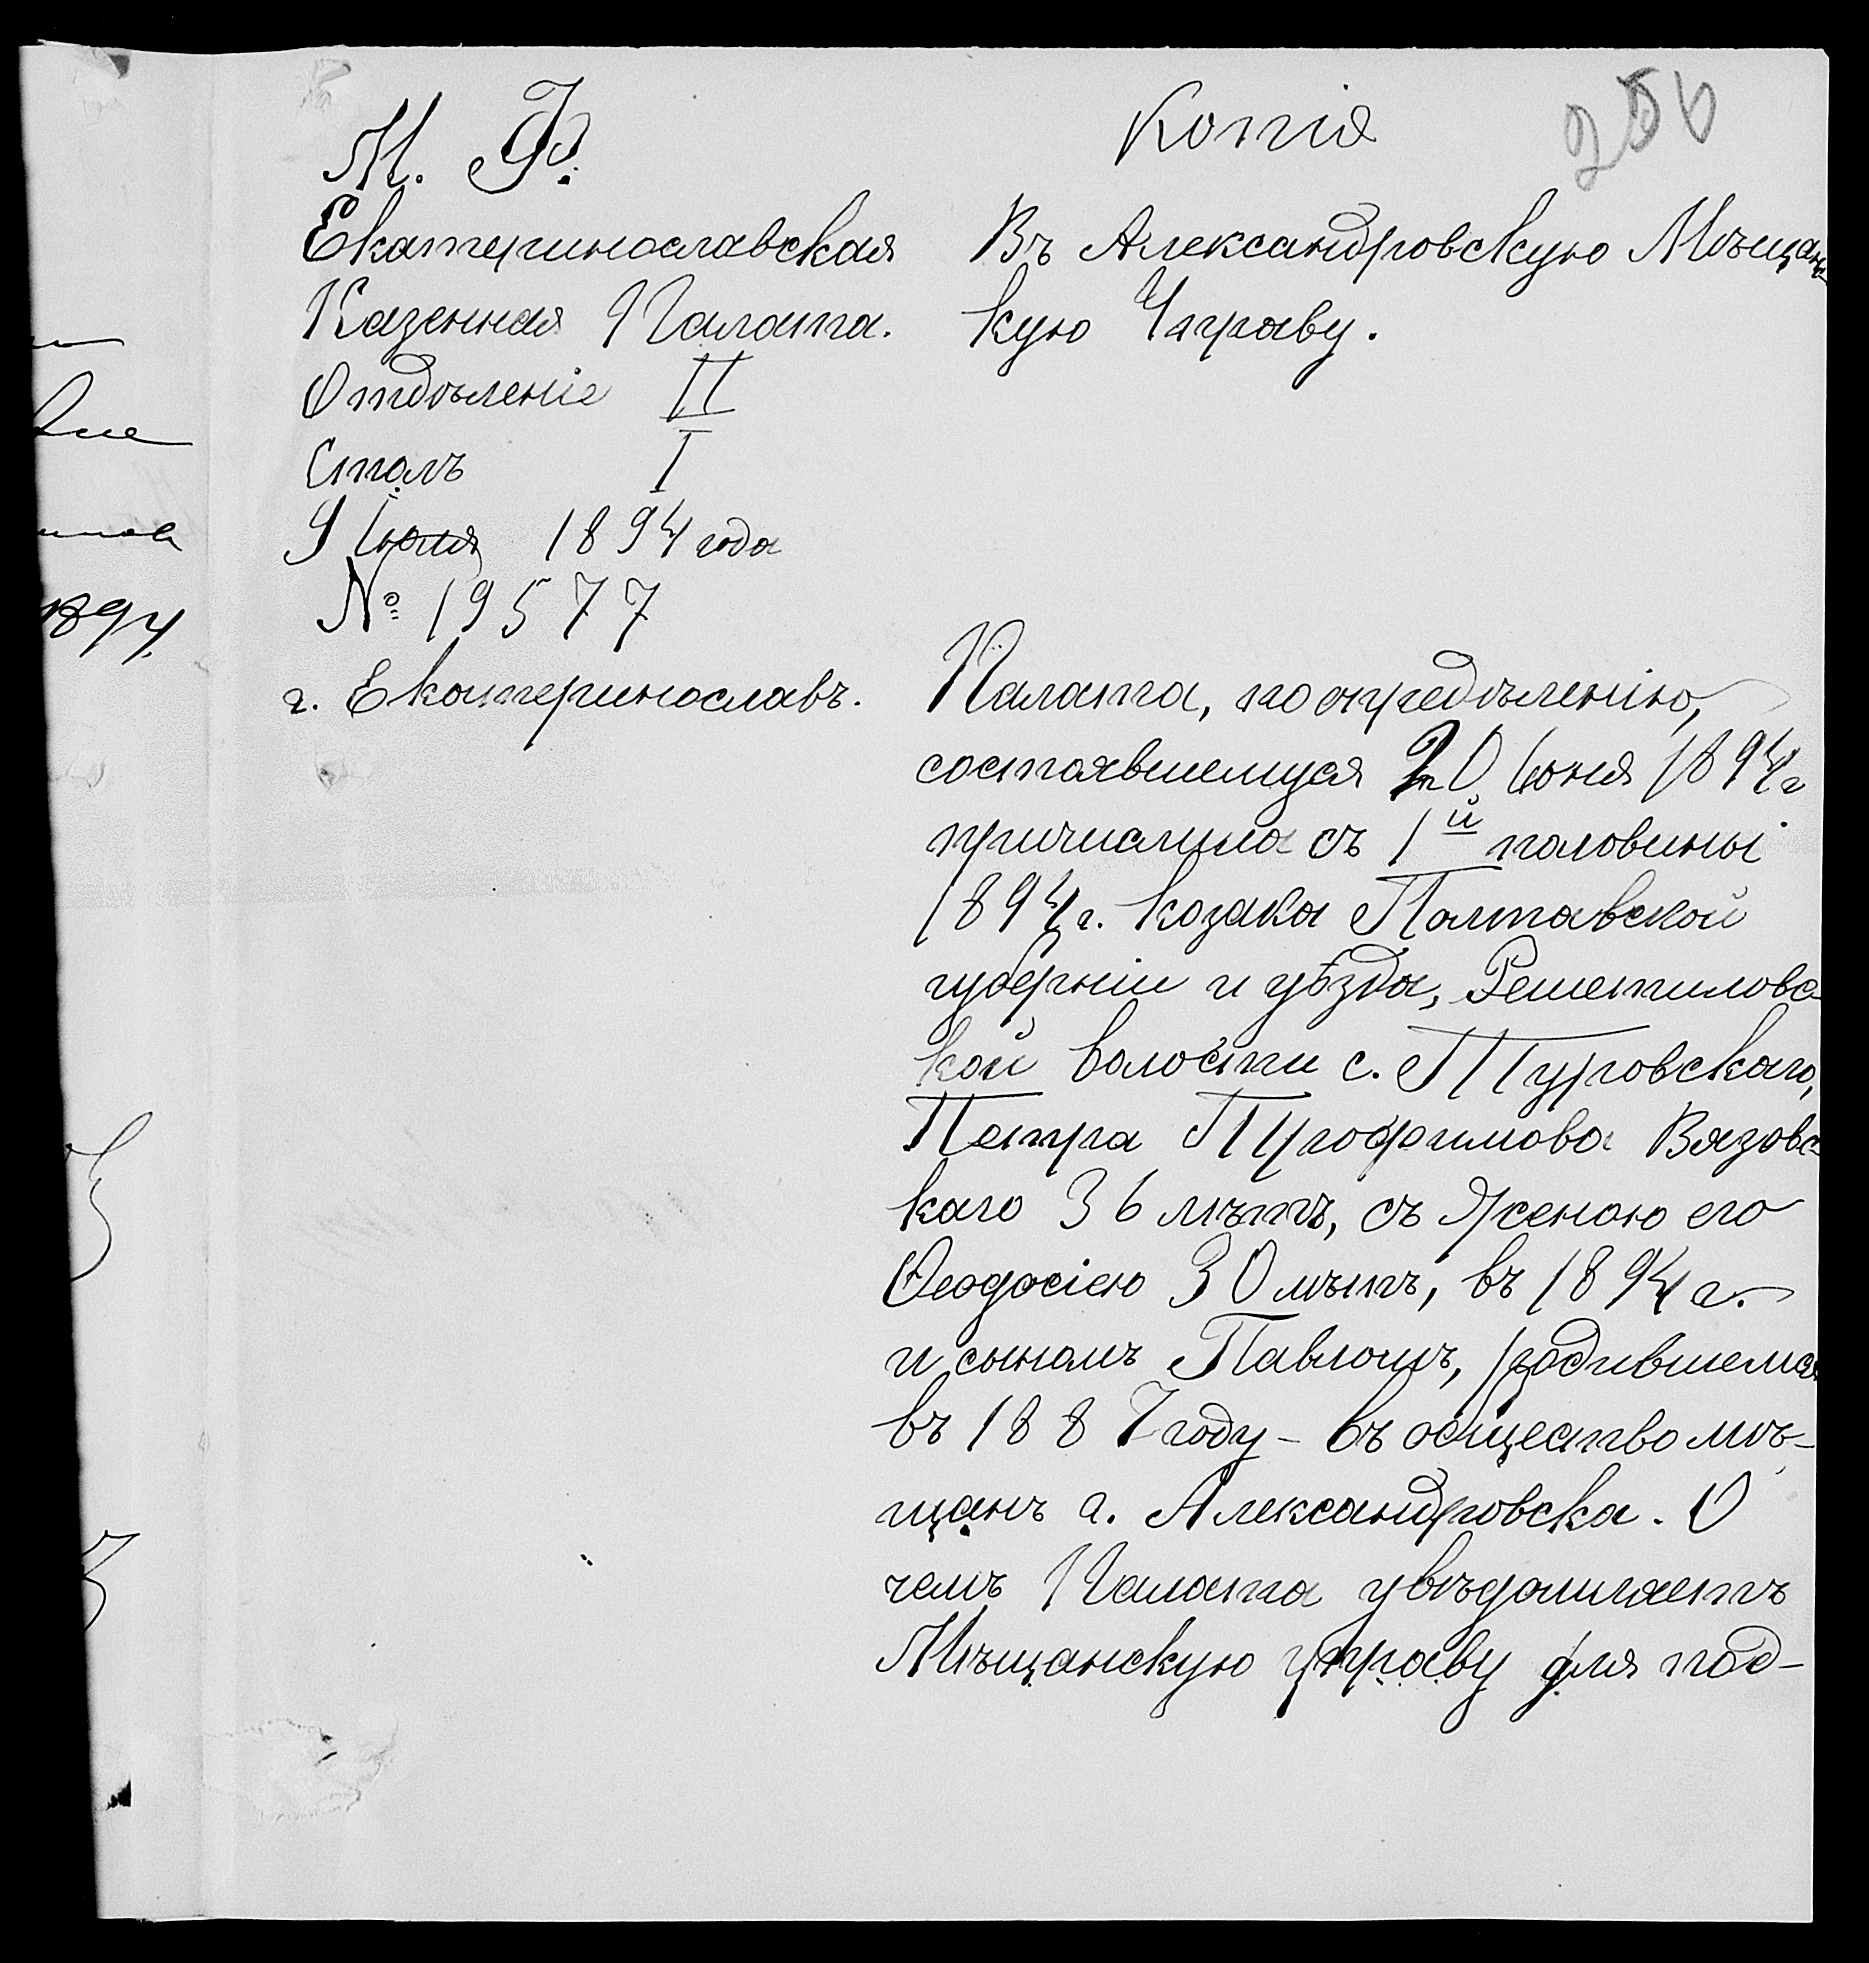 Копія
256
М. Ф.
Екатеринославская
Казенная Палата.
Отдѣленіе II
Столъ I
9 Іюля 1894 года
№ 19577
г. Екатеринославъ.
Въ Александровскую Мѣщанс-
кую Управу.
Палата, по опредѣленію,
состоявшемуся 20 Іюня 1894 г
причислила съ 1й половины
1894 г. козака Полтавской
губерніи и уѣзда, Решетиловс-
кой волости с.
Петра Трофимова Вязовс-
каго 36 лѣтъ, съ женою его
Ѳеодосіею 30 лѣтъ, въ 1894 г.
и сыномъ Павломъ, родившемся
въ 1887 году - въ общество мѣ-
щанъ г. Александровска. О
чемъ Палата увѣдомляетъ
Мѣщанскую управу для над-
1894